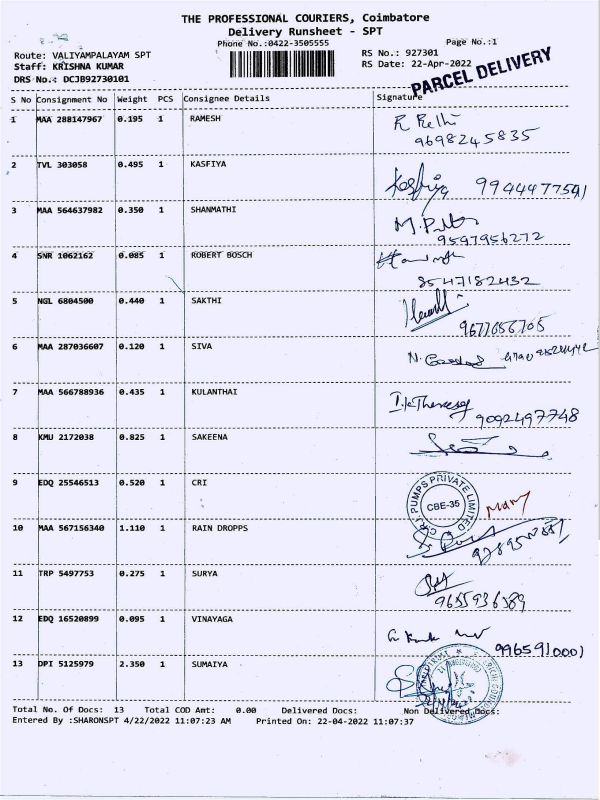 THE PROFESSIONAL COURIERS, Coimbatore
Delivery Runsheet - SPT
Phone No.:0422-3505555 Page No.:1
Route: VALIYAMPALAYAM SPT RS No.: 927301
Staff: KRISHNA KUMAR RS Date: 22-Apr-2022
DRS No.: DCJB92730101
PARCEL DELIVERY
S No Consignment No Weight PCS Consignee Details Signature
1 MAA 288147967 0.195 1 RAMESH
9698245835
2 TVL 303058 0.495 1 KASFIYA Kasfiya 9944477591
3 MAA 564637982 0.350 1 SHANMATHI
9597956272
4 SNR 1062162 0.085 1 ROBERT BOSCH
8547182432
5 NGL 6804500 0.440 1 SAKTHI
9677656705
6 MAA 287036607 0.120 1 SIVA
7 MAA 566788936 0.435 1 KULANTHAI
9092497748
8 KMU 2172038 0.825 1 SAKEENA
9 EDQ 25546513 0.520 1 CRI
C.R.I. PUMPS PRIVATE LIMITED
CBE-35
10 MAA 567156340 1.110 1 RAIN DROPPS
11 TRP 5497753 0.275 1 SURYA
9655936389
12 EDQ 16520899 0.095 1 VINAYAGA
9965910001
13 DPI 5125979 2.350 1 SUMAIYA
Total No. Of Docs: 13 Total COD Amt: 0.00 Delivered Docs: Non Delivered Docs:
Entered By :SHARONSPT 4/22/2022 11:07:23 AM Printed On: 22-04-2022 11:07:37